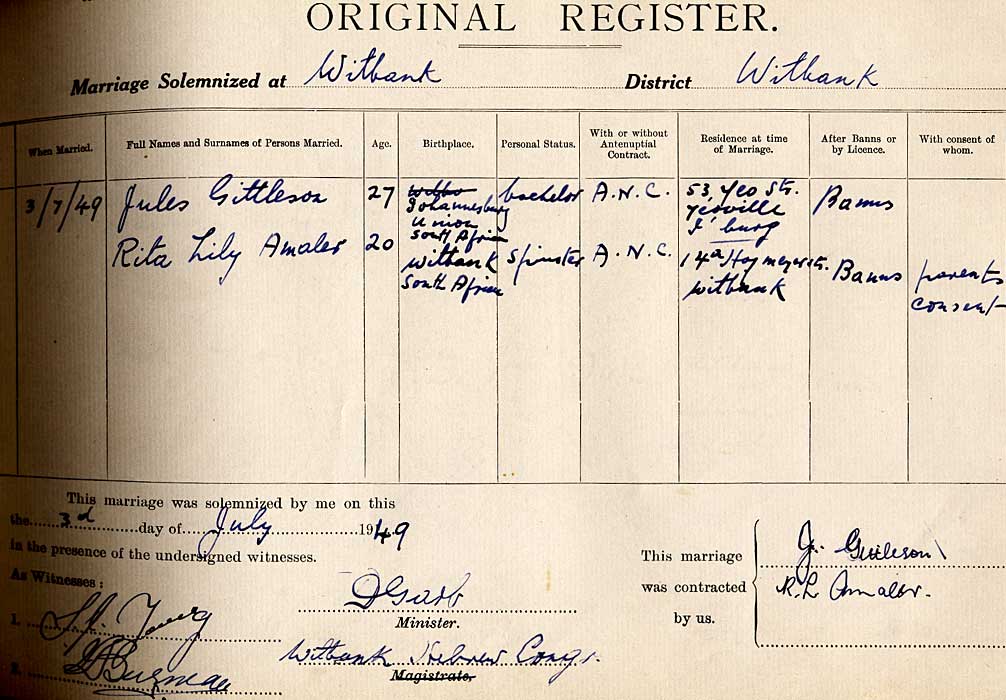 ORIGINAL REGISTER.
Marriage Solemnized at Witbank District Witbank
When Married. Full Names and Surnames of Persons Married. Age. Birthplace. Personal Status. With or without Antenuptial Contract. Residence at time of Marriage. After Banns or by Licence. With consent of whom.
3/7/49 Jules Gittleson 27 Johannesburg Union South Africa bachelor A.N.C. 53, Yeo St. Yeoville J'burg Banns
Rita Lily Amaler 20 Witbank South Africa Spinster A.N.C. 14a Hofmeyer st. Witbank Banns parents consent
This marriage was solemnized by me on this
the 3d day of July 1949
in the presence of the undersigned witnesses.
As Witnesses:
1.
2.
D Garb
Minister.
Witbank Hebrew Congr.
Magistrate.
This marriage
was contracted
by us.
J. Gittleson
R.L. Amaler.